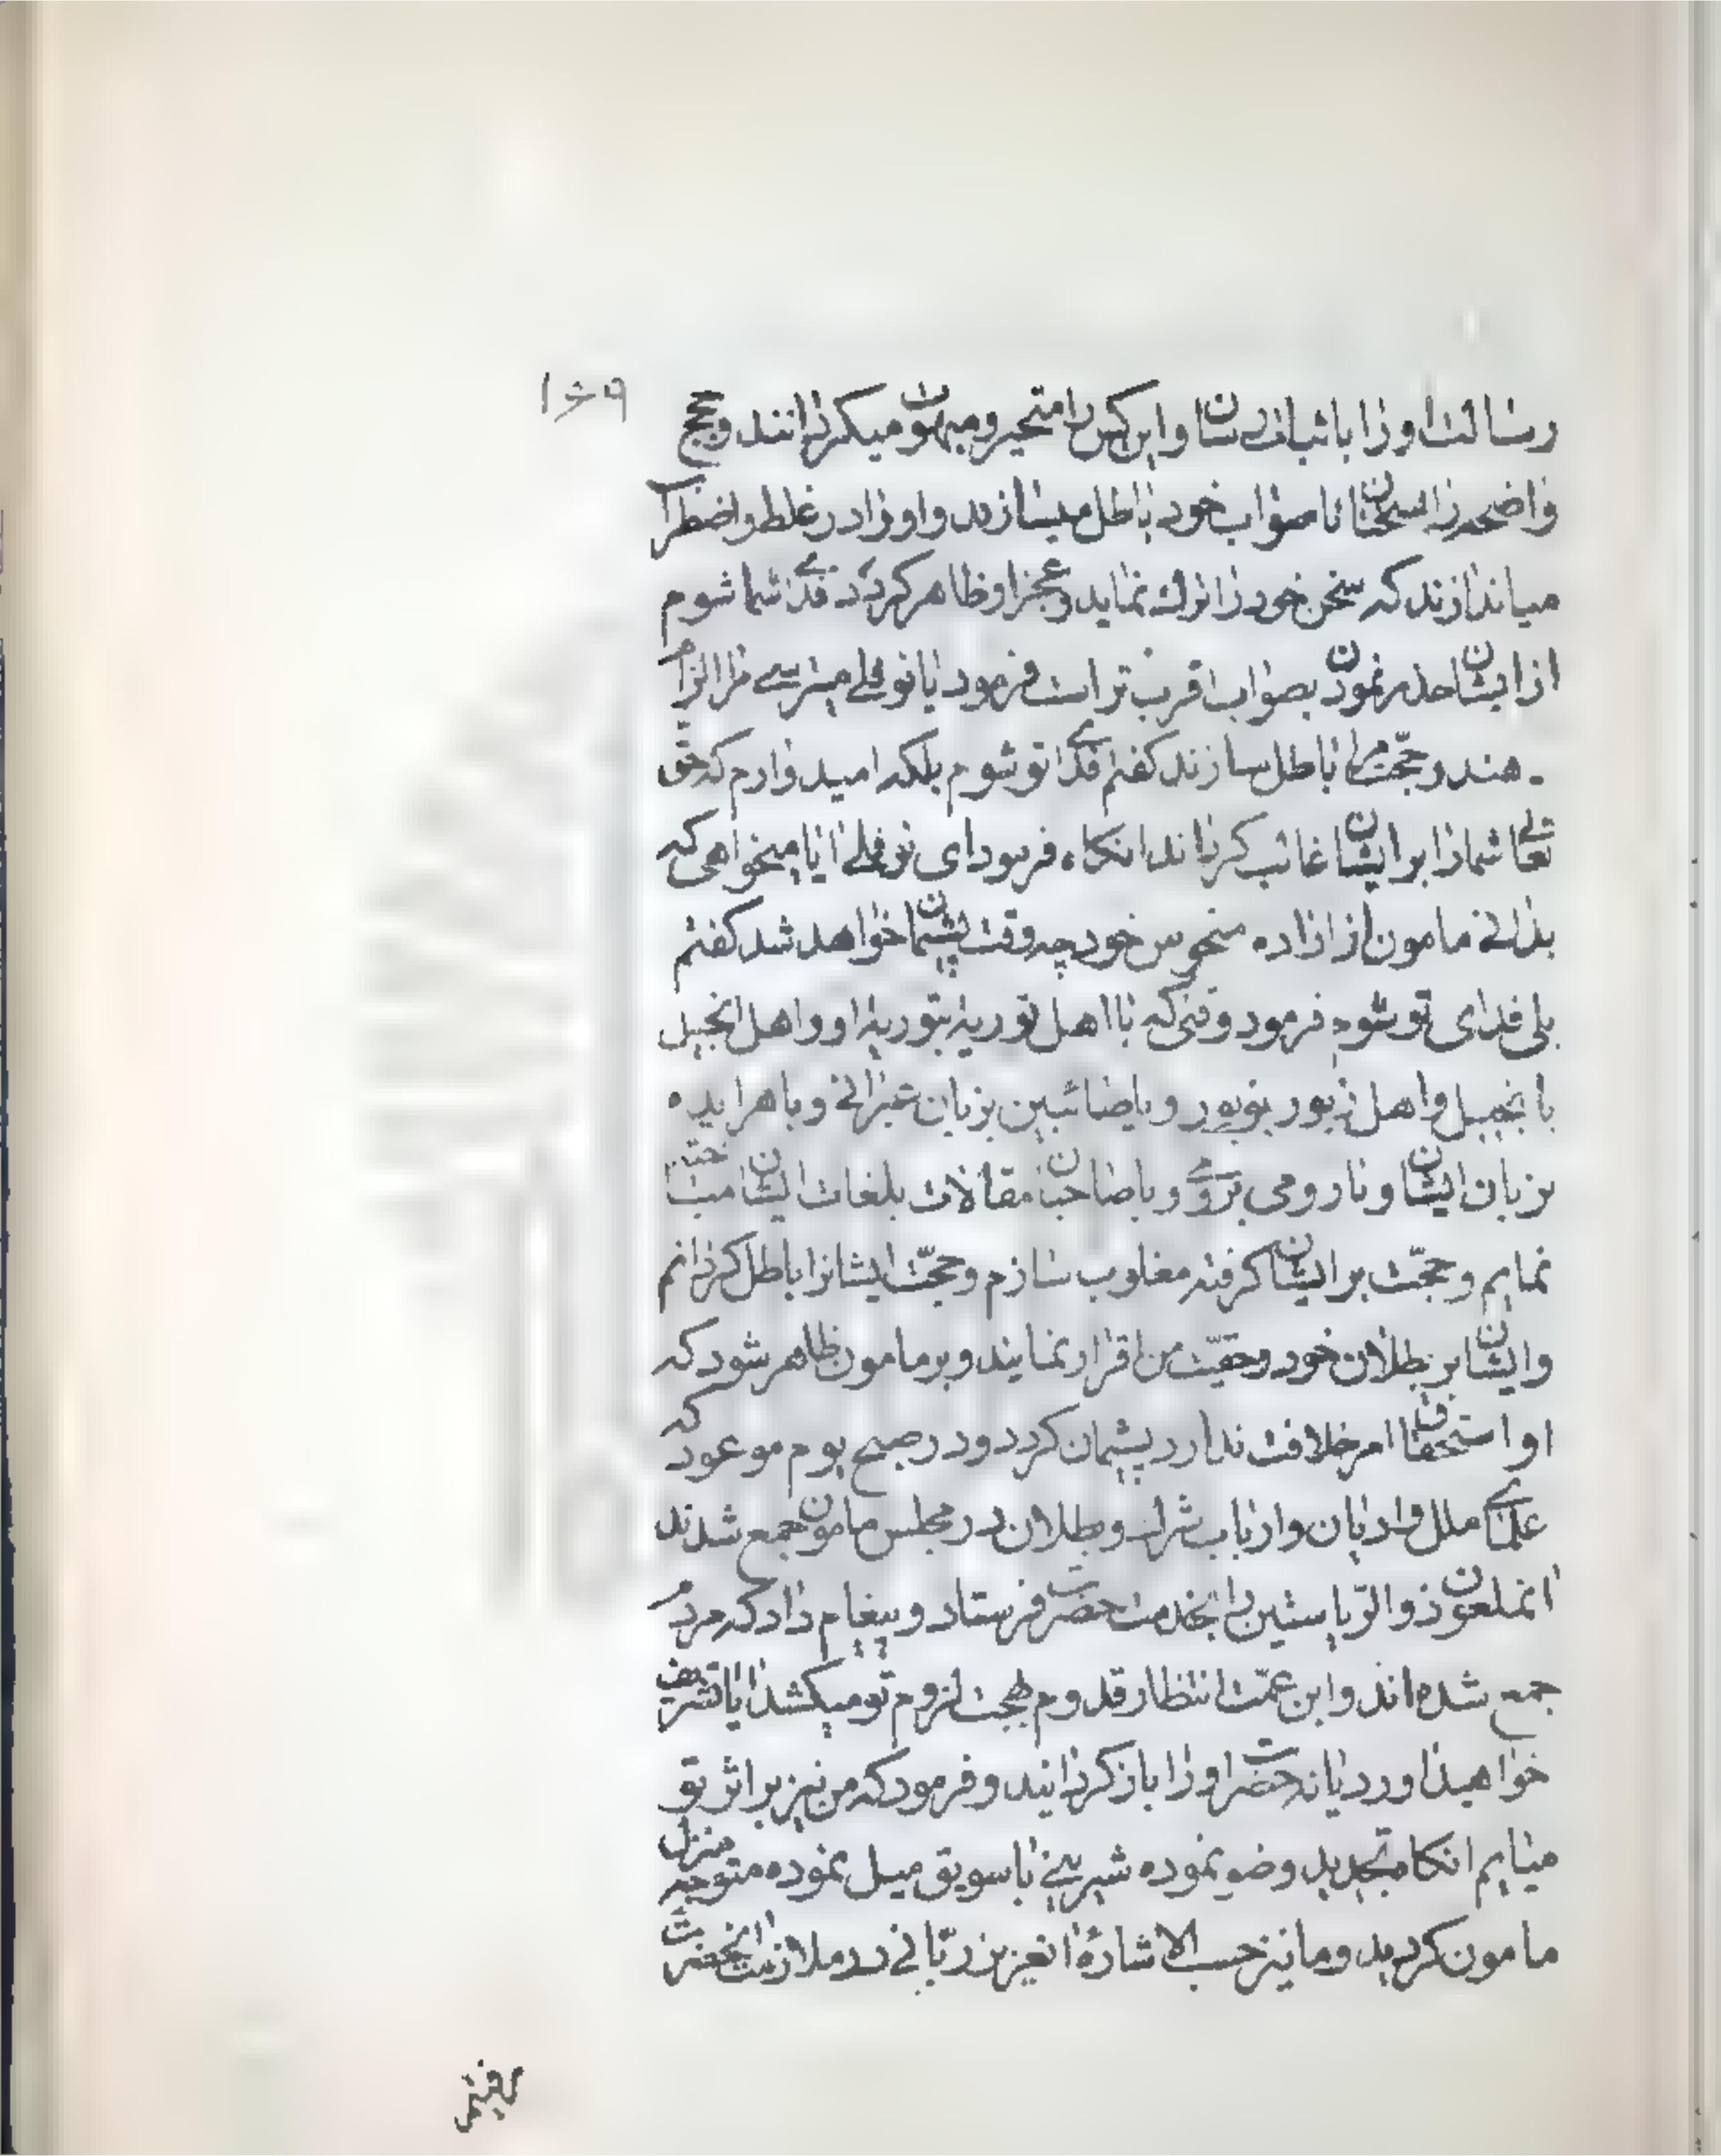 ۱۶۹
رسالت او را باثبات رسان و اینکس را متحیر و مبهوت میکردانند و حجج
واضحه را بسخنان ناصواب خود باطل میسازند و او را در غلط و اضطرا
میاندازند که سخن خود را ترک نماید و عجز او ظاهر کردد فدای شما شوم
از ایشان حذر نمودن بصواب اقرب تر است فرمود یا نوفلی میترسی مرا الزام
دهند و حجت مرا باطل سازند کفتم فدای تو شوم بلکه امیدوارم که حق
تعالی شما را بر ایشان غالب کرداند انکاه فرمود ای نوفلی ایا میخواهی که
بدانی مامون از اراده منحوس خود چه وقت پشیمان خواهد شد کفتم
بلی فدای تو شوم فرمود وقتی که با اهل توریة بتوریة او و اهل انجیل
بانجیل و اهل زبور بزبور و با صائبین بزبان عبرانی و با هرابده
بزبان ایشان و با رومی برومی و با صاحبان مقالات بلغات ایشان مباحثه
نمایم و حجّت بر ایشان کرفته مغلوب سازم و حجّت ایشانرا باطل کردانم
و ایشان بر بطلان خود و حقیّت من اقرار نمایند و بر مامون ظاهر شود که
او استحقاق امر خلافت ندارد پشیمان کردد و در صبح یوم موعود که
علمای ملل و ادیان و ارباب شرک و بطلان در مجلس مامون جمع شدند
انملعون ذو الرّیاستین را بخدمت حضرت فرستاد و پیغام داد که مردم
جمع شده اند و ابن عمّت انتظار قدوم بهجت لزوم تو میکشد ایا تشریف
خواهید اورد یا نه حضرت او را باز کردانید و فرمود که من نیز بر اثر تو
میایم انکاه تجدید وضو نموده شربتی با سویق میل نموده متوجه منزل
مامون کردید و ما نیز حسب الاشارهٔ انعزیز ربّانی در ملازمت انحضرت
رفتیم